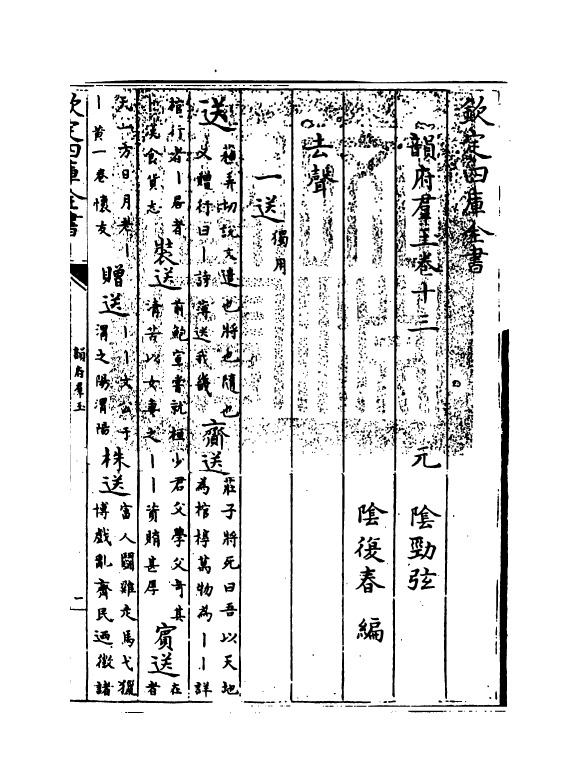 欽定四庫全書
韻府羣玉卷十三 元 陰勁弦
陰復春 編
去聲
一送 獨用
送 蘓弄切説文遣也將也隨也又贈行曰丨詩薄送我畿 齎送 莊子將死曰吾以天地為棺槨萬物為丨丨詳
棺行者丨居者丨漢食貨志 裝送 前鮑宣嘗就桓少君父學父奇其清苦以女妻之丨丨資賄甚厚 賓送 在者
天一方日月老丨丨黄一卷懷友 贈送 丨丨文公于渭之陽渭陽 株送 富人鬭雞走馬弋獵博戲亂齊民廼徵諸
欽定四庫全書
韻府羣玉
二